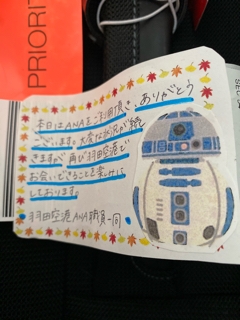 PRIORIT
本日はANAをご利用頂き、ありがとう
ございます。大変な状況が続
きますが、再び羽田空港で
お会いできることを楽しみに
しております。
羽田空港 ANA職員一同